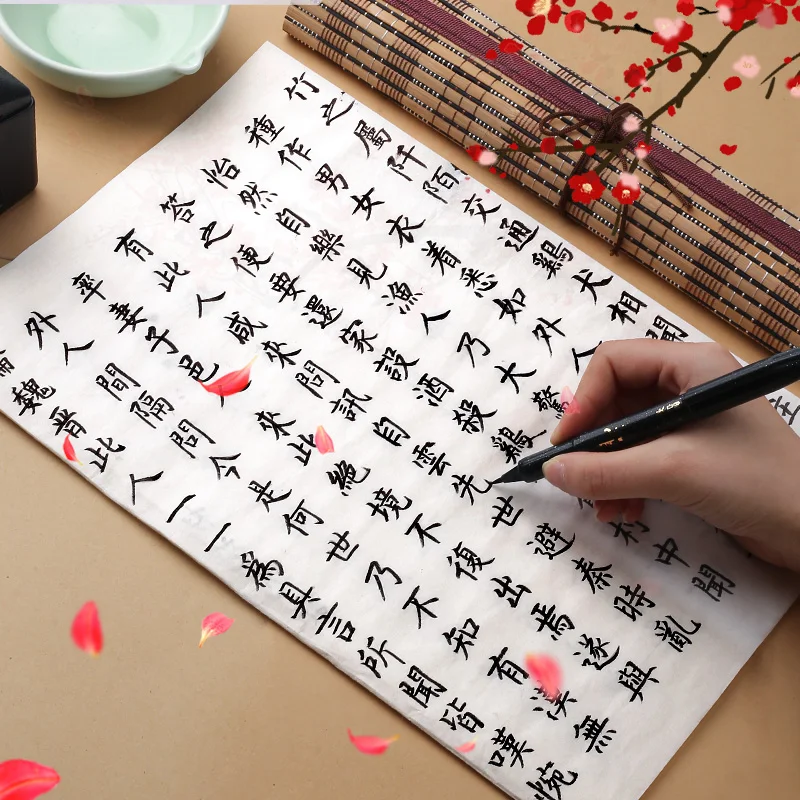 竹之屬阡陌交通鷄犬相聞
種作男女衣着悉如外人
怡然自樂見漁人乃大驚
答之便要還家設酒殺鷄村中聞
有此人咸來問訊自雲先世避秦時亂
率妻子邑人來此絕境不復出焉遂與
外人間隔問今是何世乃不知有漢無
魏晉此人一一為具言所聞皆嘆惋